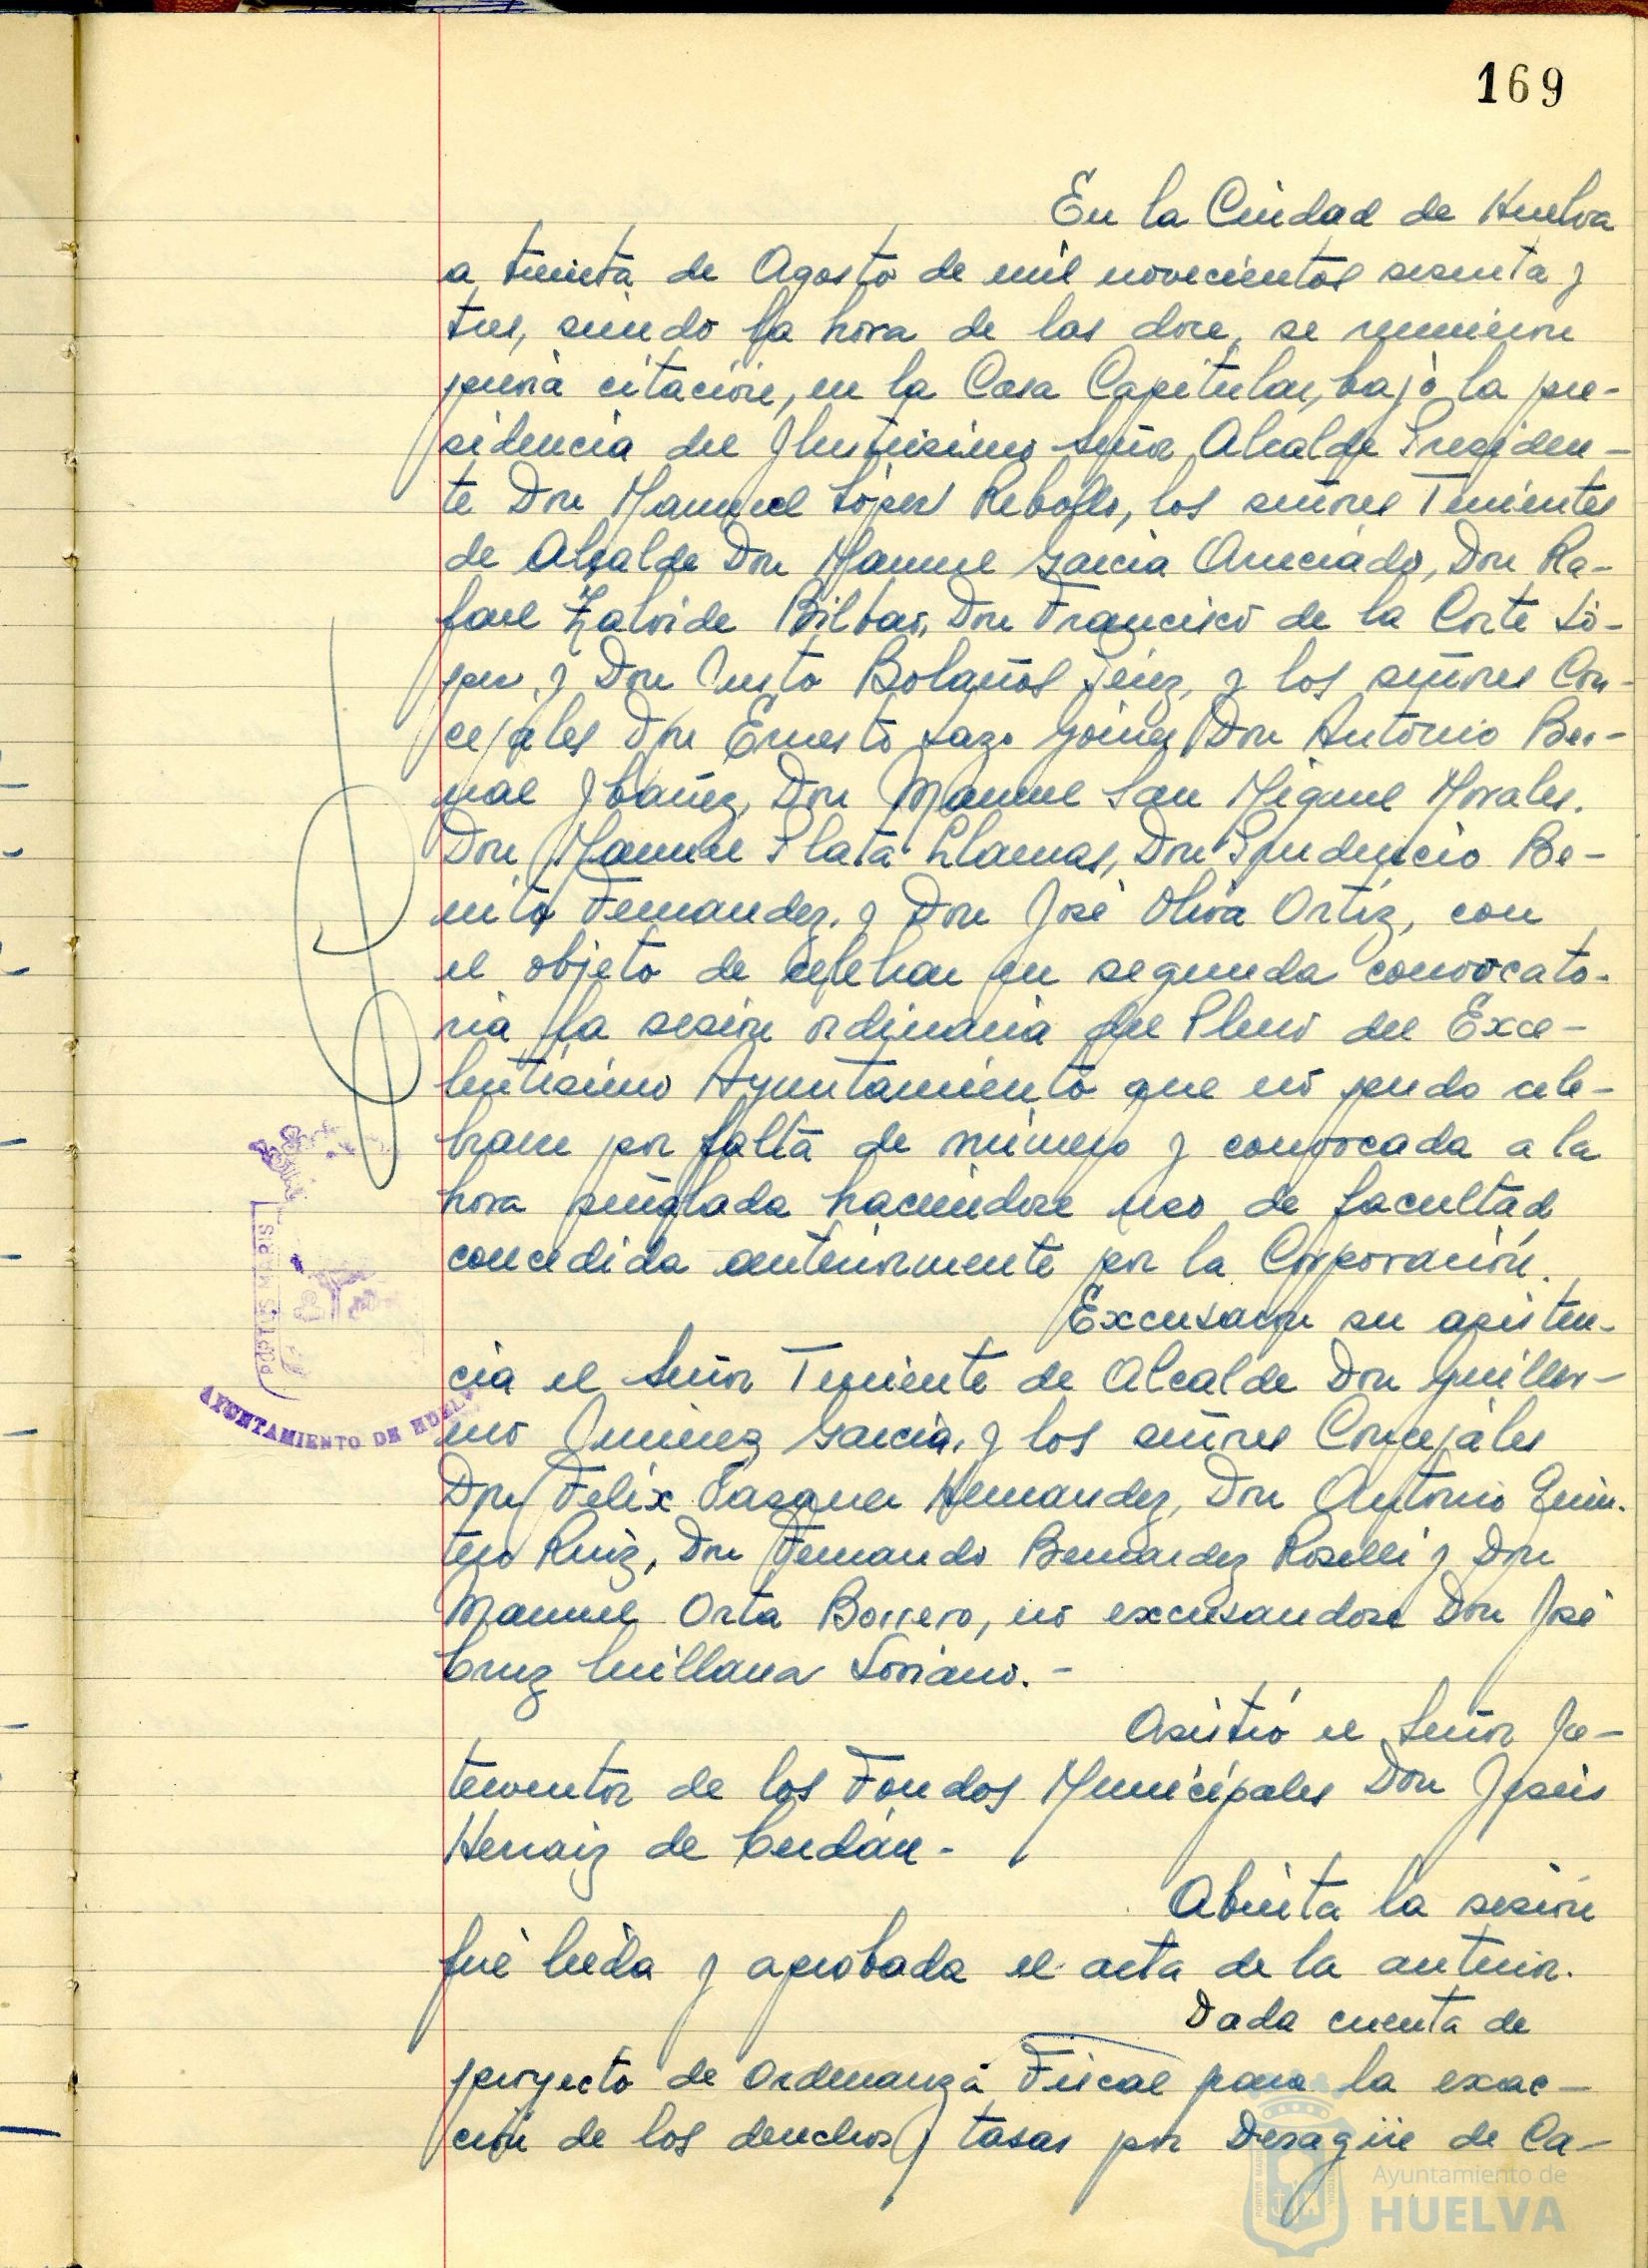 169
En la Ciudad de Huelva
a treinta de Agosto de mil novecientos sesenta y
tres, siendo la hora de las doce, se reunieron
previa citación, en la Casa Capitular, bajo la pre-
sidencia del Ilustrisimo Señor Alcalde Presiden-
te Don Manuel López Rebollo, los señores Tenientes
de Alcalde Don Manuel Garcia Anreciado, Don Ra-
fael Zalvide Bilbao, Don Francisco de la Corte Ló-
pez, y Don Justo Bolaños Feriz, y los señores Con-
cejales Don Ernesto Lazo Gómez, Don Antonio Ber-
nal Ybañez, Don Manuel San Miguel Morales,
Don Manuel Plata Llamas, Don Prudencio Be-
nito Fernandez, y Don José Oliva Ortiz, con
el objeto de celebrar en segunda convocato-
ria la sesión ordinaria del Pleno del Exce-
lentisimo Ayuntamiento que no pudo cele-
brarse por falta de número y convocada a la
hora señalada haciendose uso de facultad
concedida anteriormente por la Corporación.
Excusaron su asisten-
cia el Señor Teniente de Alcalde Don Guiller-
mo Jimenez Garcia, y los señores Concejales
Don Felix Vazquez Hernandez, Don Antonio Quin-
tero Ruiz, Don Fernando Bernardez Roselli y Don
Manuel Orta Borrero, no excusandose Don José
Cruz Millana Soriano. -
Asistió el Señor In-
terventor de los Fondos Municipales Don Jesús
Herraiz de Cerdán -
Abierta la sesión
fué leida y aprobada el acta de la anterior.
Dada cuenta de
proyecto de Ordenanza Fiscal para la exac-
ción de los derechos y tasas por Desagüe de Ca-
PORTUS MARIS
AYUNTAMIENTO DE HUELVA
Ayuntamiento de
HUELVA